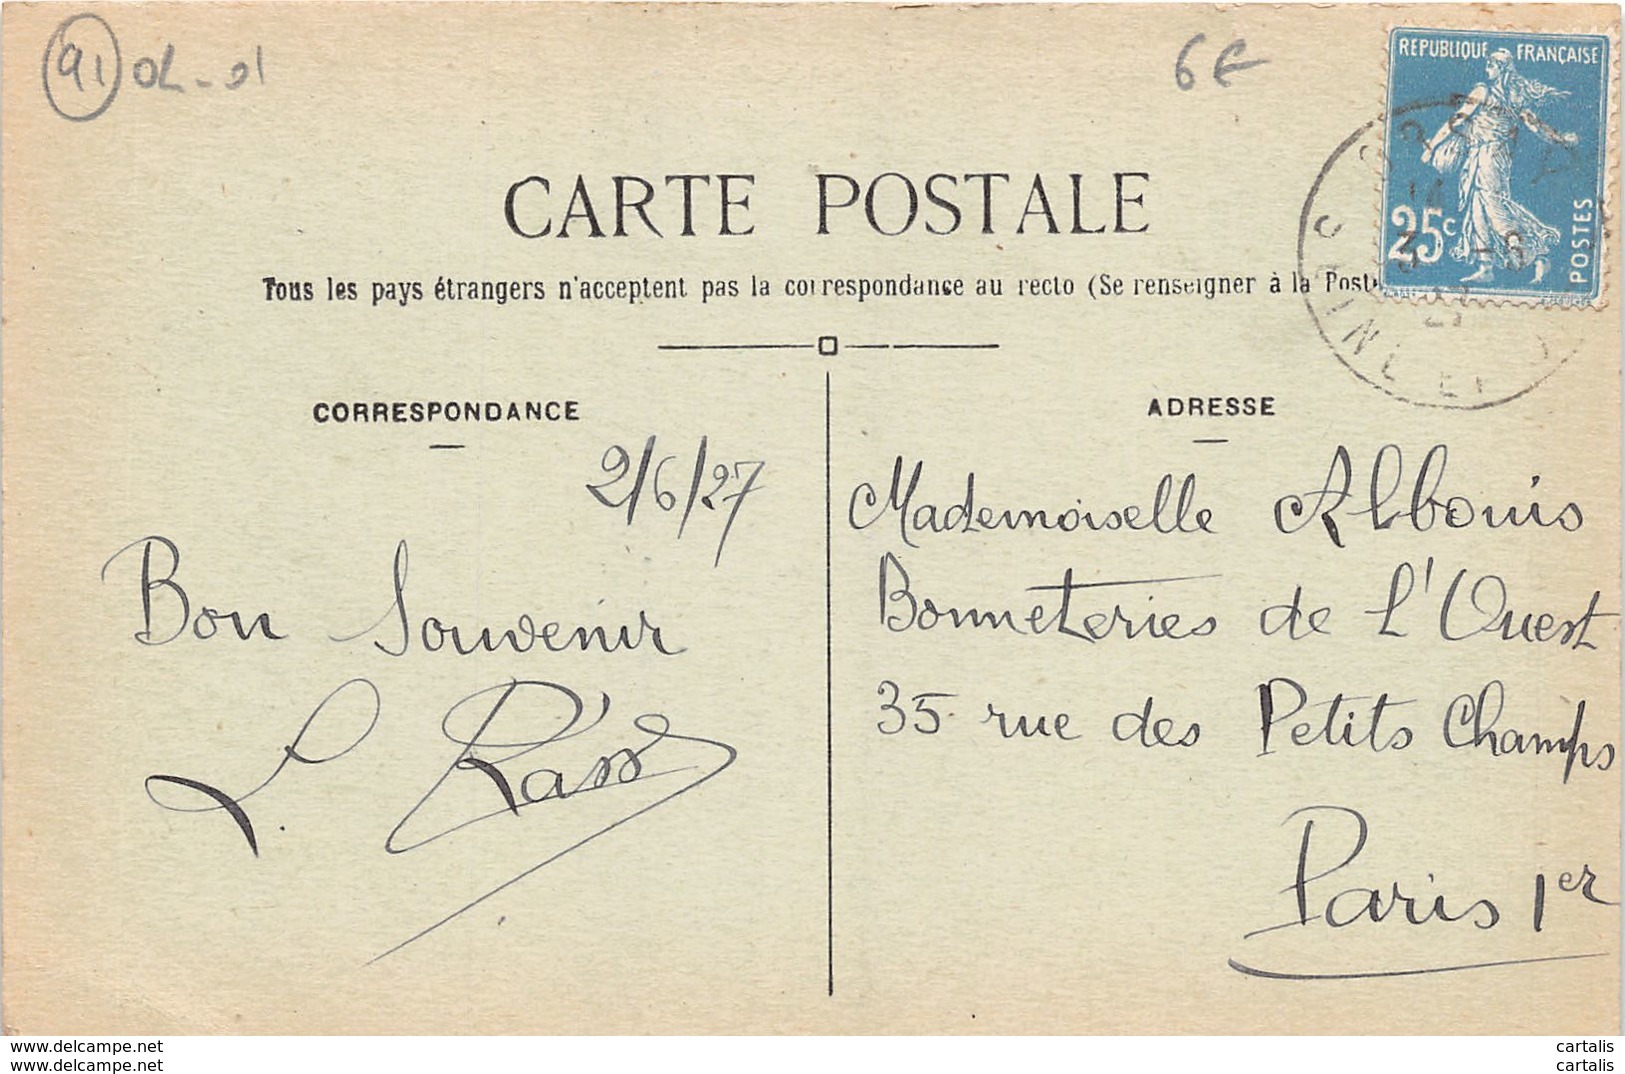 91 OL-01
6€
REPUBLIQUE FRANÇAISE
25c
POSTES
ORSAY
CARTE POSTALE
Tous les pays étrangers n'acceptent pas la correspondance au recto (Se renseigner à la Poste
CORRESPONDANCE
2/6/27
Bon Souvenir
ADRESSE
Mademoiselle Albouis
Bonneteries de l'Ouest
35 rue des Petits Champs
Paris 1er
www.delcampe.net
www.delcampe.net
cartalis
cartalis